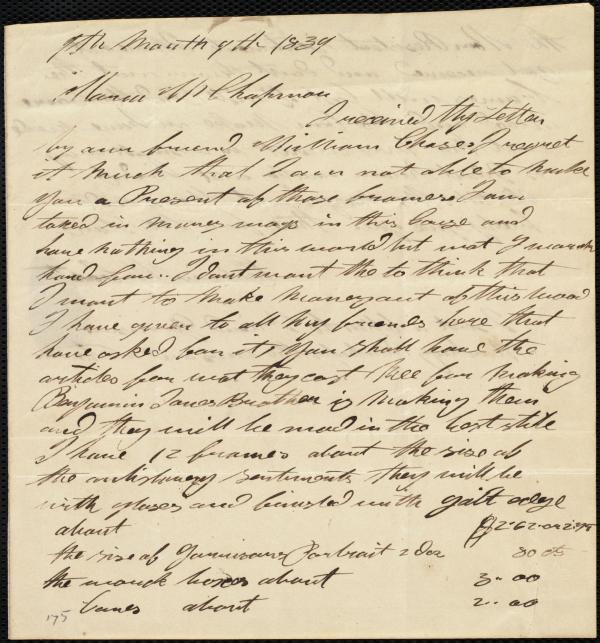 9th Month 9th 1839
Maria W Chapman
I received thy Letter
by our friend William Chase I regret
it Much that I am not able to make
you a Present of those frames I am
taxed in maney ways in this Cause and
have nothing in this world but wat I work
hard for.. I dont want the to think that
I want to make money out of this wood
I have given to all my friends here that
have asked for it you shall have the
articles for wat they cost Me for making
Benjamin Jones Brother is making them
and they will be mad in the best stile
I have 12 frames about the size of
the antislavery sentiments they will be
with glases and with gilt edge
about $2.62 or 2.75
the size of Garrisons Portrait 2 doz 80 cts
the boxes about 3.00
Canes about 2.00
175